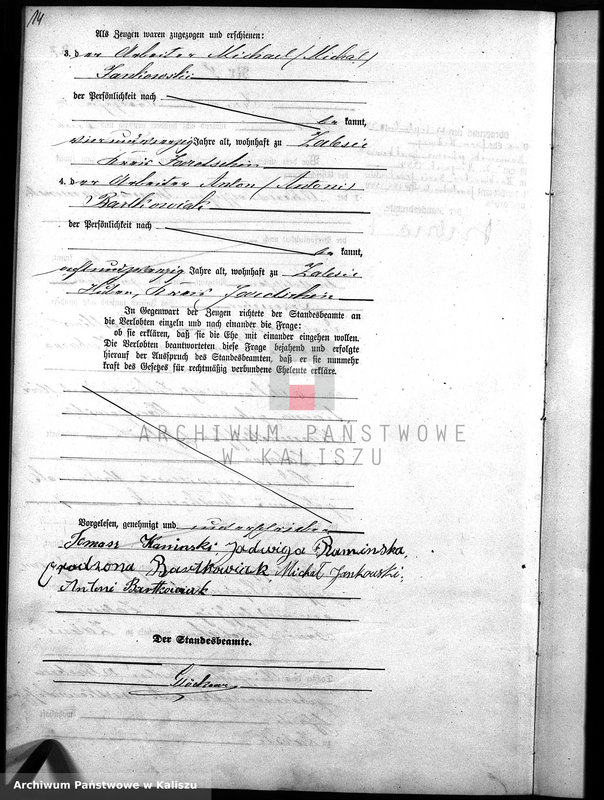 14
Als Zeugen waren zugezogen und erschienen:
3. der Arbeiter Michael (Michał)
Jankowski
der Persönlichkeit nach
be kannt,
vierundvierzig Jahre alt, wohnhaft zu Zalesie
Kreis Jarotschin
4. der Arbeiter Anton (Antoni)
Bartkowiak
der Persönlichkeit nach
be kannt,
Jahre alt, wohnhaft zu Zalesie
Kreis Jarotschin
In Gegenwart der Zeugen richtete der Standesbeamte an
die Verlobten einzeln und nach einander die Frage:
ob sie erklären, daß sie die Ehe mit einander eingehen wollen.
Die Verlobten beantworteten diese Frage bejahend und erfolgte
hierauf der Ausspruch des Standesbeamten, daß er sie nunmehr
kraft des Gesetzes für rechtmäßig verbundene Eheleute erkläre.
ARCHIWUM PAŃSTWOWE
W KALISZU
Vorgelesen, genehmigt und unterschrieben
Tomasz Kaminski, Jadwiga Kaminska,
grodzona Bartkowiak, Michał Jankowski,
Antoni Bartkowiak
Der Standesbeamte.
Archiwum Państwowe w Kaliszu